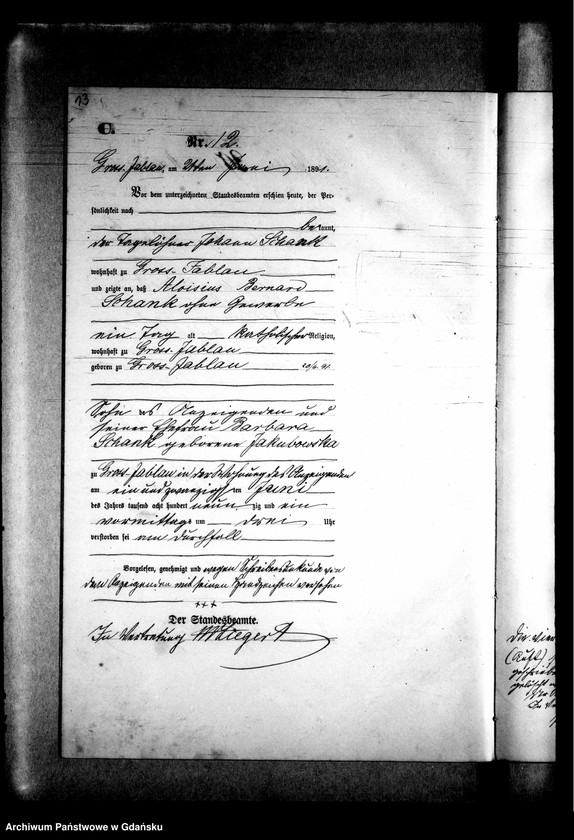 13
C.
Nr. 12.
Gross Jablau, am 21ten Juni 1891.
Vor dem unterzeichneten Standesbeamten erschien heute, der Per-
sönlichkeit nach
be kannt,
der Tagelöhner Johann Schank
wohnhaft zu Gross Jablau
und zeigte an, daß Aloisius Bernard
Schank ohne Gewerbe
ein Tag alt katholischer Religion,
wohnhaft zu Gross Jablau
geboren zu Gross-Jablau 20/6. 91.
Sohn des Anzeigenden und
seiner Ehefrau Barbara
Schank geborene Jakubowska
zu Gross Jablau in der Wohnung des Anzeigenden
am ein und zwanzigsten Juni
des Jahres tausend acht hundert neun zig und ein
vormittags um drei Uhr
verstorben sei am Durchfall
Vorgelesen, genehmigt und wegen Schreibensunkunde von
dem Anzeigenden mit seinen Handzeichen versehen
+++
Der Standesbeamte.
In Vertretung
Die vier
(Auft)
geschriebe
gelöscht
In Ve
Archiwum Państwowe w Gdańsku